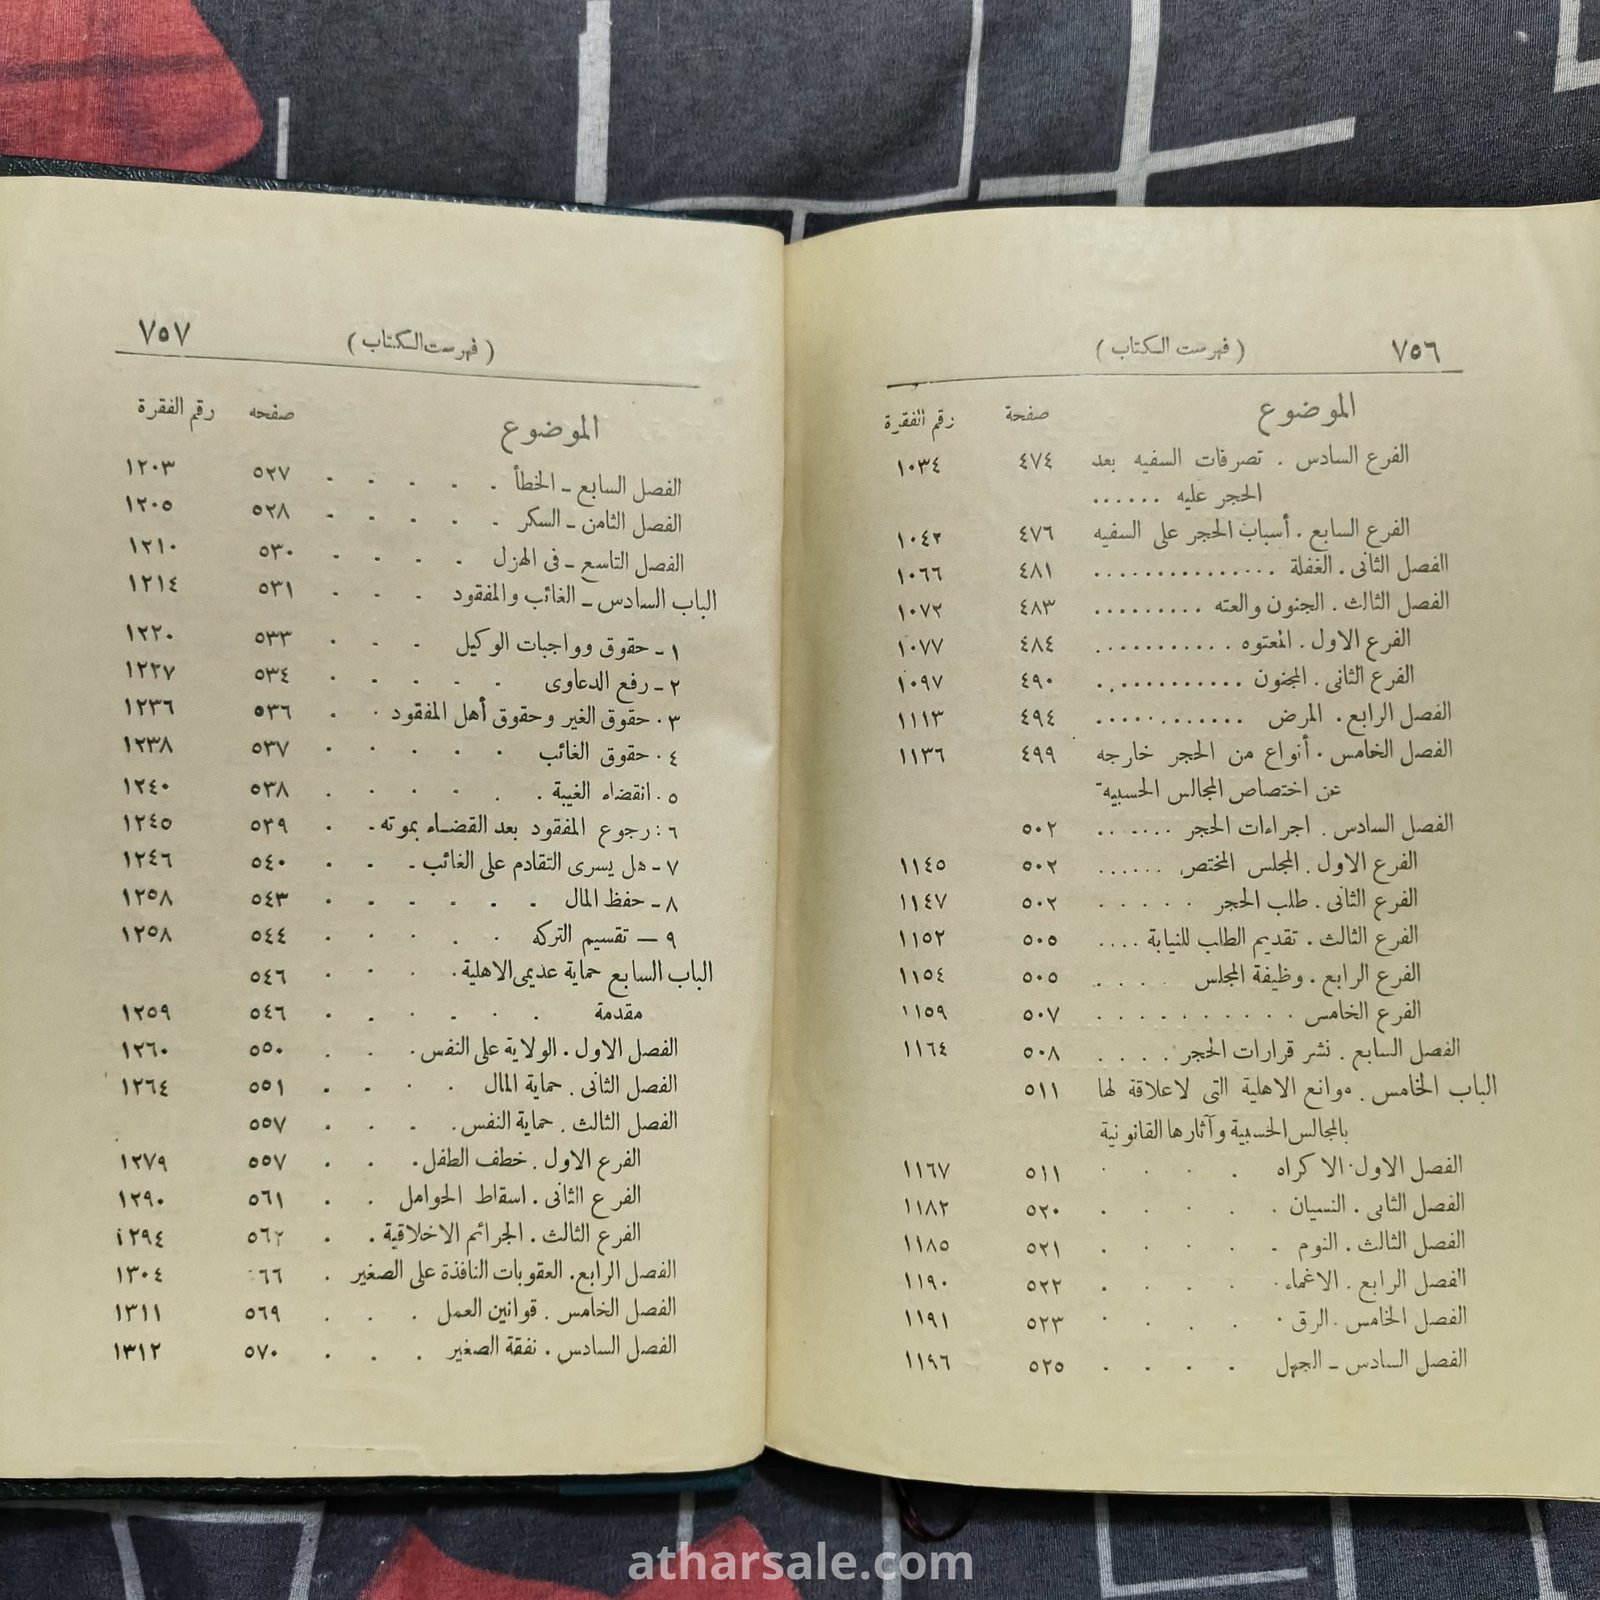 ٧٥٦ ( فهرست الكتاب )
الموضوع صفحة رقم الفقرة
الفرع السادس . تصرفات السفيه بعد ٤٧٤ ١٠٣٤
الحجر عليه ......
الفرع السابع . أسباب الحجر على السفيه ٤٧٦ ١٠٤٢
الفصل الثانى . الغفلة ............... ٤٨١ ١٠٦٦
الفصل الثالث . الجنون والعته ......... ٤٨٣ ١٠٧٢
الفرع الاول . المعتوه ........... ٤٨٤ ١٠٧٧
الفرع الثانى . المجنون ............ ٤٩٠ ١٠٩٧
الفصل الرابع . المرض ............ ٤٩٤ ١١١٣
الفصل الخامس . أنواع من الحجر خارجه ٤٩٩ ١١٣٦
عن اختصاص المجالس الحسبية
الفصل السادس . اجراءات الحجر ....... ٥٠٢
الفرع الاول . المجلس المختص ...... ٥٠٢ ١١٤٥
الفرع الثانى . طلب الحجر ..... ٥٠٢ ١١٤٧
الفرع الثالث . تقديم الطلب للنيابة .... ٥٠٥ ١١٥٢
الفرع الرابع . وظيفة المجلس .... ٥٠٥ ١١٥٤
الفرع الخامس .......... ٥٠٧ ١١٥٩
الفصل السابع . نشر قرارات الحجر .... ٥٠٨ ١١٦٤
الباب الخامس . موانع الاهلية التى لاعلاقة لها ٥١١
بالمجالس الحسبية وآثارها القانونية
الفصل الاول . الاكراه .... ٥١١ ١١٦٧
الفصل الثانى . النسيان .... ٥٢٠ ١١٨٢
الفصل الثالث . النوم .... ٥٢١ ١١٨٥
الفصل الرابع . الاغماء .... ٥٢٢ ١١٩٠
الفصل الخامس . الرق .... ٥٢٣ ١١٩١
الفصل السادس ـ الجهل .... ٥٢٥ ١١٩٦
( فهرست الكتاب ) ٧٥٧
الموضوع صفحه رقم الفقرة
الفصل السابع ـ الخطأ ..... ٥٢٧ ١٢٠٣
الفصل الثامن ـ السكر ..... ٥٢٨ ١٢٠٥
الفصل التاسع ـ فى الهزل .... ٥٣٠ ١٢١٠
الباب السادس ـ الغائب والمفقود ... ٥٣١ ١٢١٤
١ ـ حقوق وواجبات الوكيل ... ٥٣٣ ١٢٢٠
٢ ـ رفع الدعاوى ..... ٥٣٤ ١٢٢٧
٣ . حقوق الغير وحقوق أهل المفقود .. ٥٣٦ ١٢٣٦
٤ . حقوق الغائب ..... ٥٣٧ ١٢٣٨
٥ . انقضاء الغيبة ...... ٥٣٨ ١٢٤٠
٦ : رجوع المفقود بعد القضاء بموته .. ٥٣٩ ١٢٤٥
٧ ـ هل يسرى التقادم على الغائب ... ٥٤٠ ١٢٤٦
٨ ـ حفظ المال ...... ٥٤٣ ١٢٥٨
٩ — تقسيم التركه ..... ٥٤٤ ١٢٥٨
الباب السابع حماية عديمى الاهلية .... ٥٤٦
مقدمة ...... ٥٤٦ ١٢٥٩
الفصل الاول . الولاية على النفس ... ٥٥٠ ١٢٦٠
الفصل الثانى . حماية المال .... ٥٥١ ١٢٦٤
الفصل الثالث . حماية النفس .... ٥٥٧
الفرع الاول . خطف الطفل ... ٥٥٧ ١٢٧٩
الفرع الثانى . اسقاط الحوامل .. ٥٦١ ١٢٩٠
الفرع الثالث . الجرائم الاخلاقية .. ٥٦٢ ١٢٩٤
الفصل الرابع . العقوبات النافذة على الصغير . ٦٦ ١٣٠٤
الفصل الخامس . قوانين العمل ... ٥٦٩ ١٣١١
الفصل السادس . نفقة الصغير ... ٥٧٠ ١٣١٢
atharsale.com